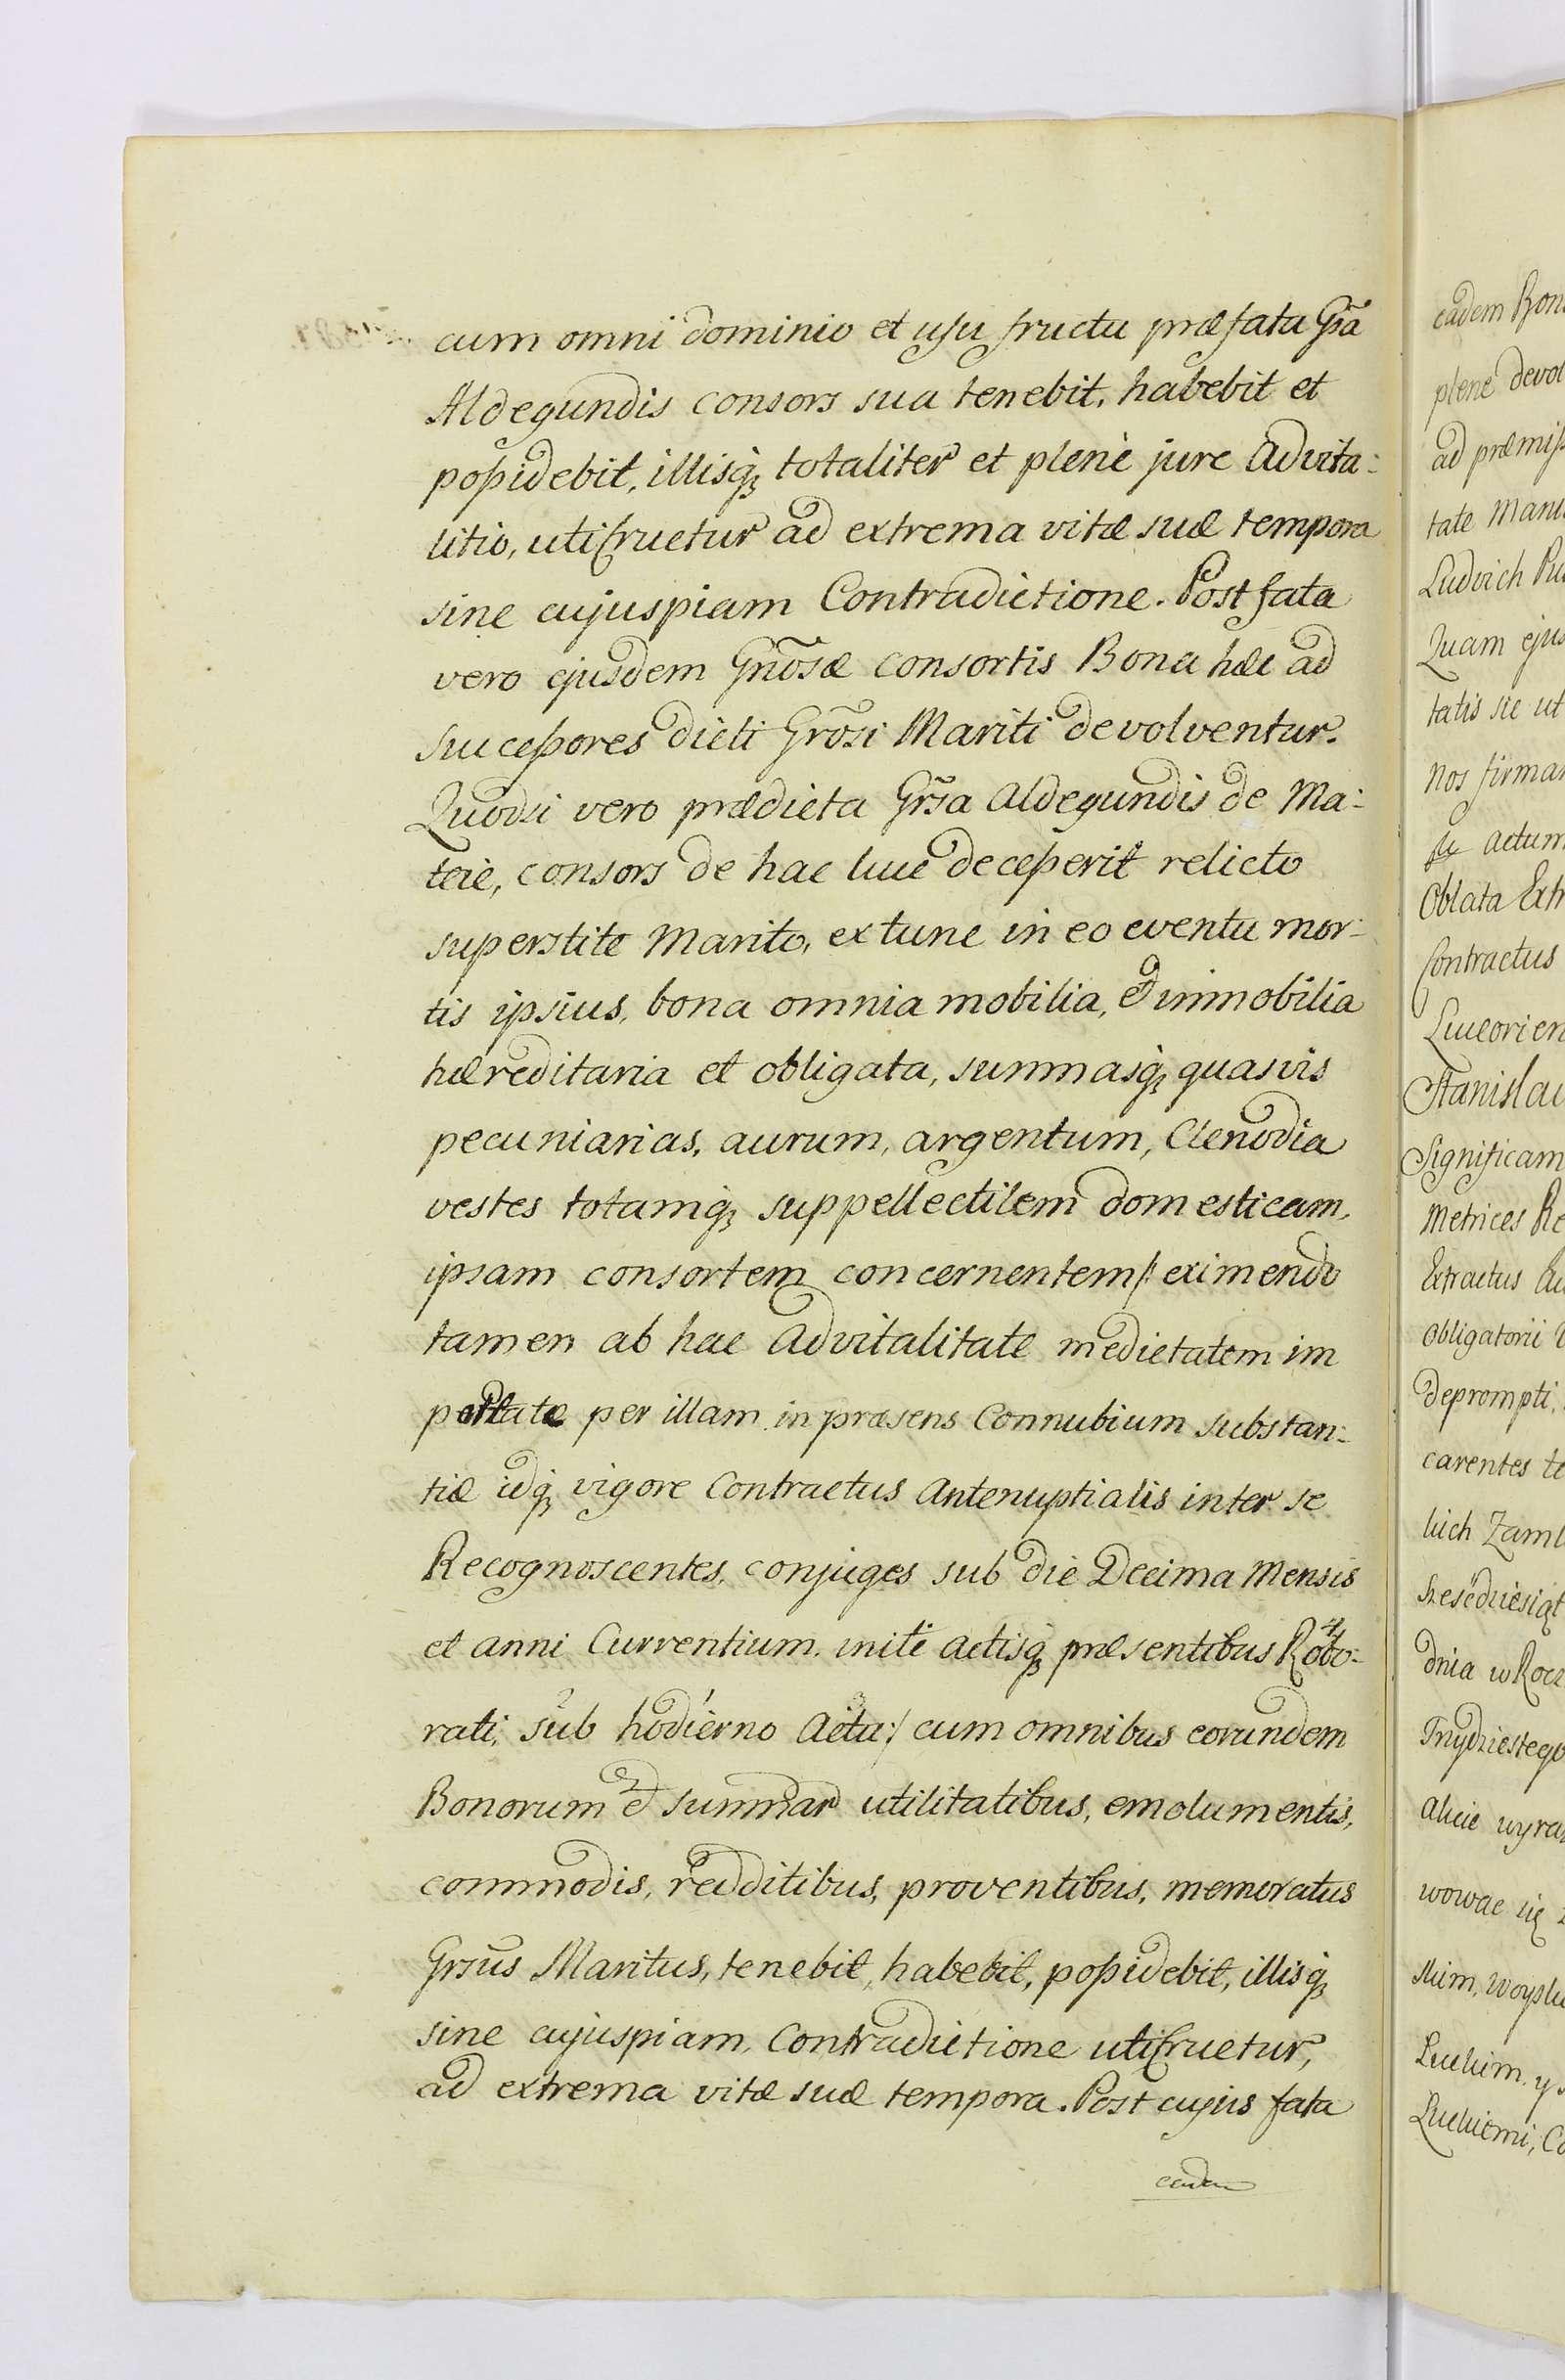 cum omni dominio et usu fructu præfata Gsa
Aldegundis consors sua tenebit, habebit et
possidebit, illisq totaliter et plenè jure Advita:
litio, utifruetur ad extrema vitæ suæ tempora
sine cujuspiam Contradictione. Post fata
vero ejusdem Gnosæ consortis Bona hæc ad
successores dicti Grosi Mariti devolventur.
Quodsi vero prædicta Grsa Aldegundis de Ma:
teie, consors de hac luce decesserit relicto
superstite Marito, extunc in eo eventu mor:
tis ipsius, bona omnia mobilia, et immobilia
hæreditaria et obligata, summasq quasvis
pecuniarias, aurum, argentum, Clenodia
vestes totamq suppellectilem domesticam,
ipsam consortem concernentem /: eximendo
tamen ab hac Advitalitate medietatem im
portatæ per illam in præsens Connubium substan:
tiæ idq vigore Contractus Antenuptialis inter se
Recognoscentes, conjuges sub die Decima Mensis
et anni Currentium, initi actisq præsentibus Robo:
rati, sub hodierno Acta :/ cum omnibus eorundem
Bonorum et summar utilitatibus, emolumentis,
commodis, redditibus, proventibus, memoratus
Grsus Maritus, tenebit, habebit, possidebit, illisq
sine cujuspiam, Contradictione utifruetur,
ad extrema vitæ suæ tempora. Post cujus fata
eadem
eadem Bon
plene devol
ad præmiss
tate Manu
Ludvich
Quam ejus
tatis sic ut
nos firmar
actum
Oblata Extr
Contractus
Luceorien
Stanislau
Significam
Metrices Re
Extractus
obligatorii
deprompti,
carentes te
kich Zaml
dnia w Rocz
Trzydziestego
alicie wyra
wowae się
skim, Woysk
Luckim, y
Luckiemi, Co